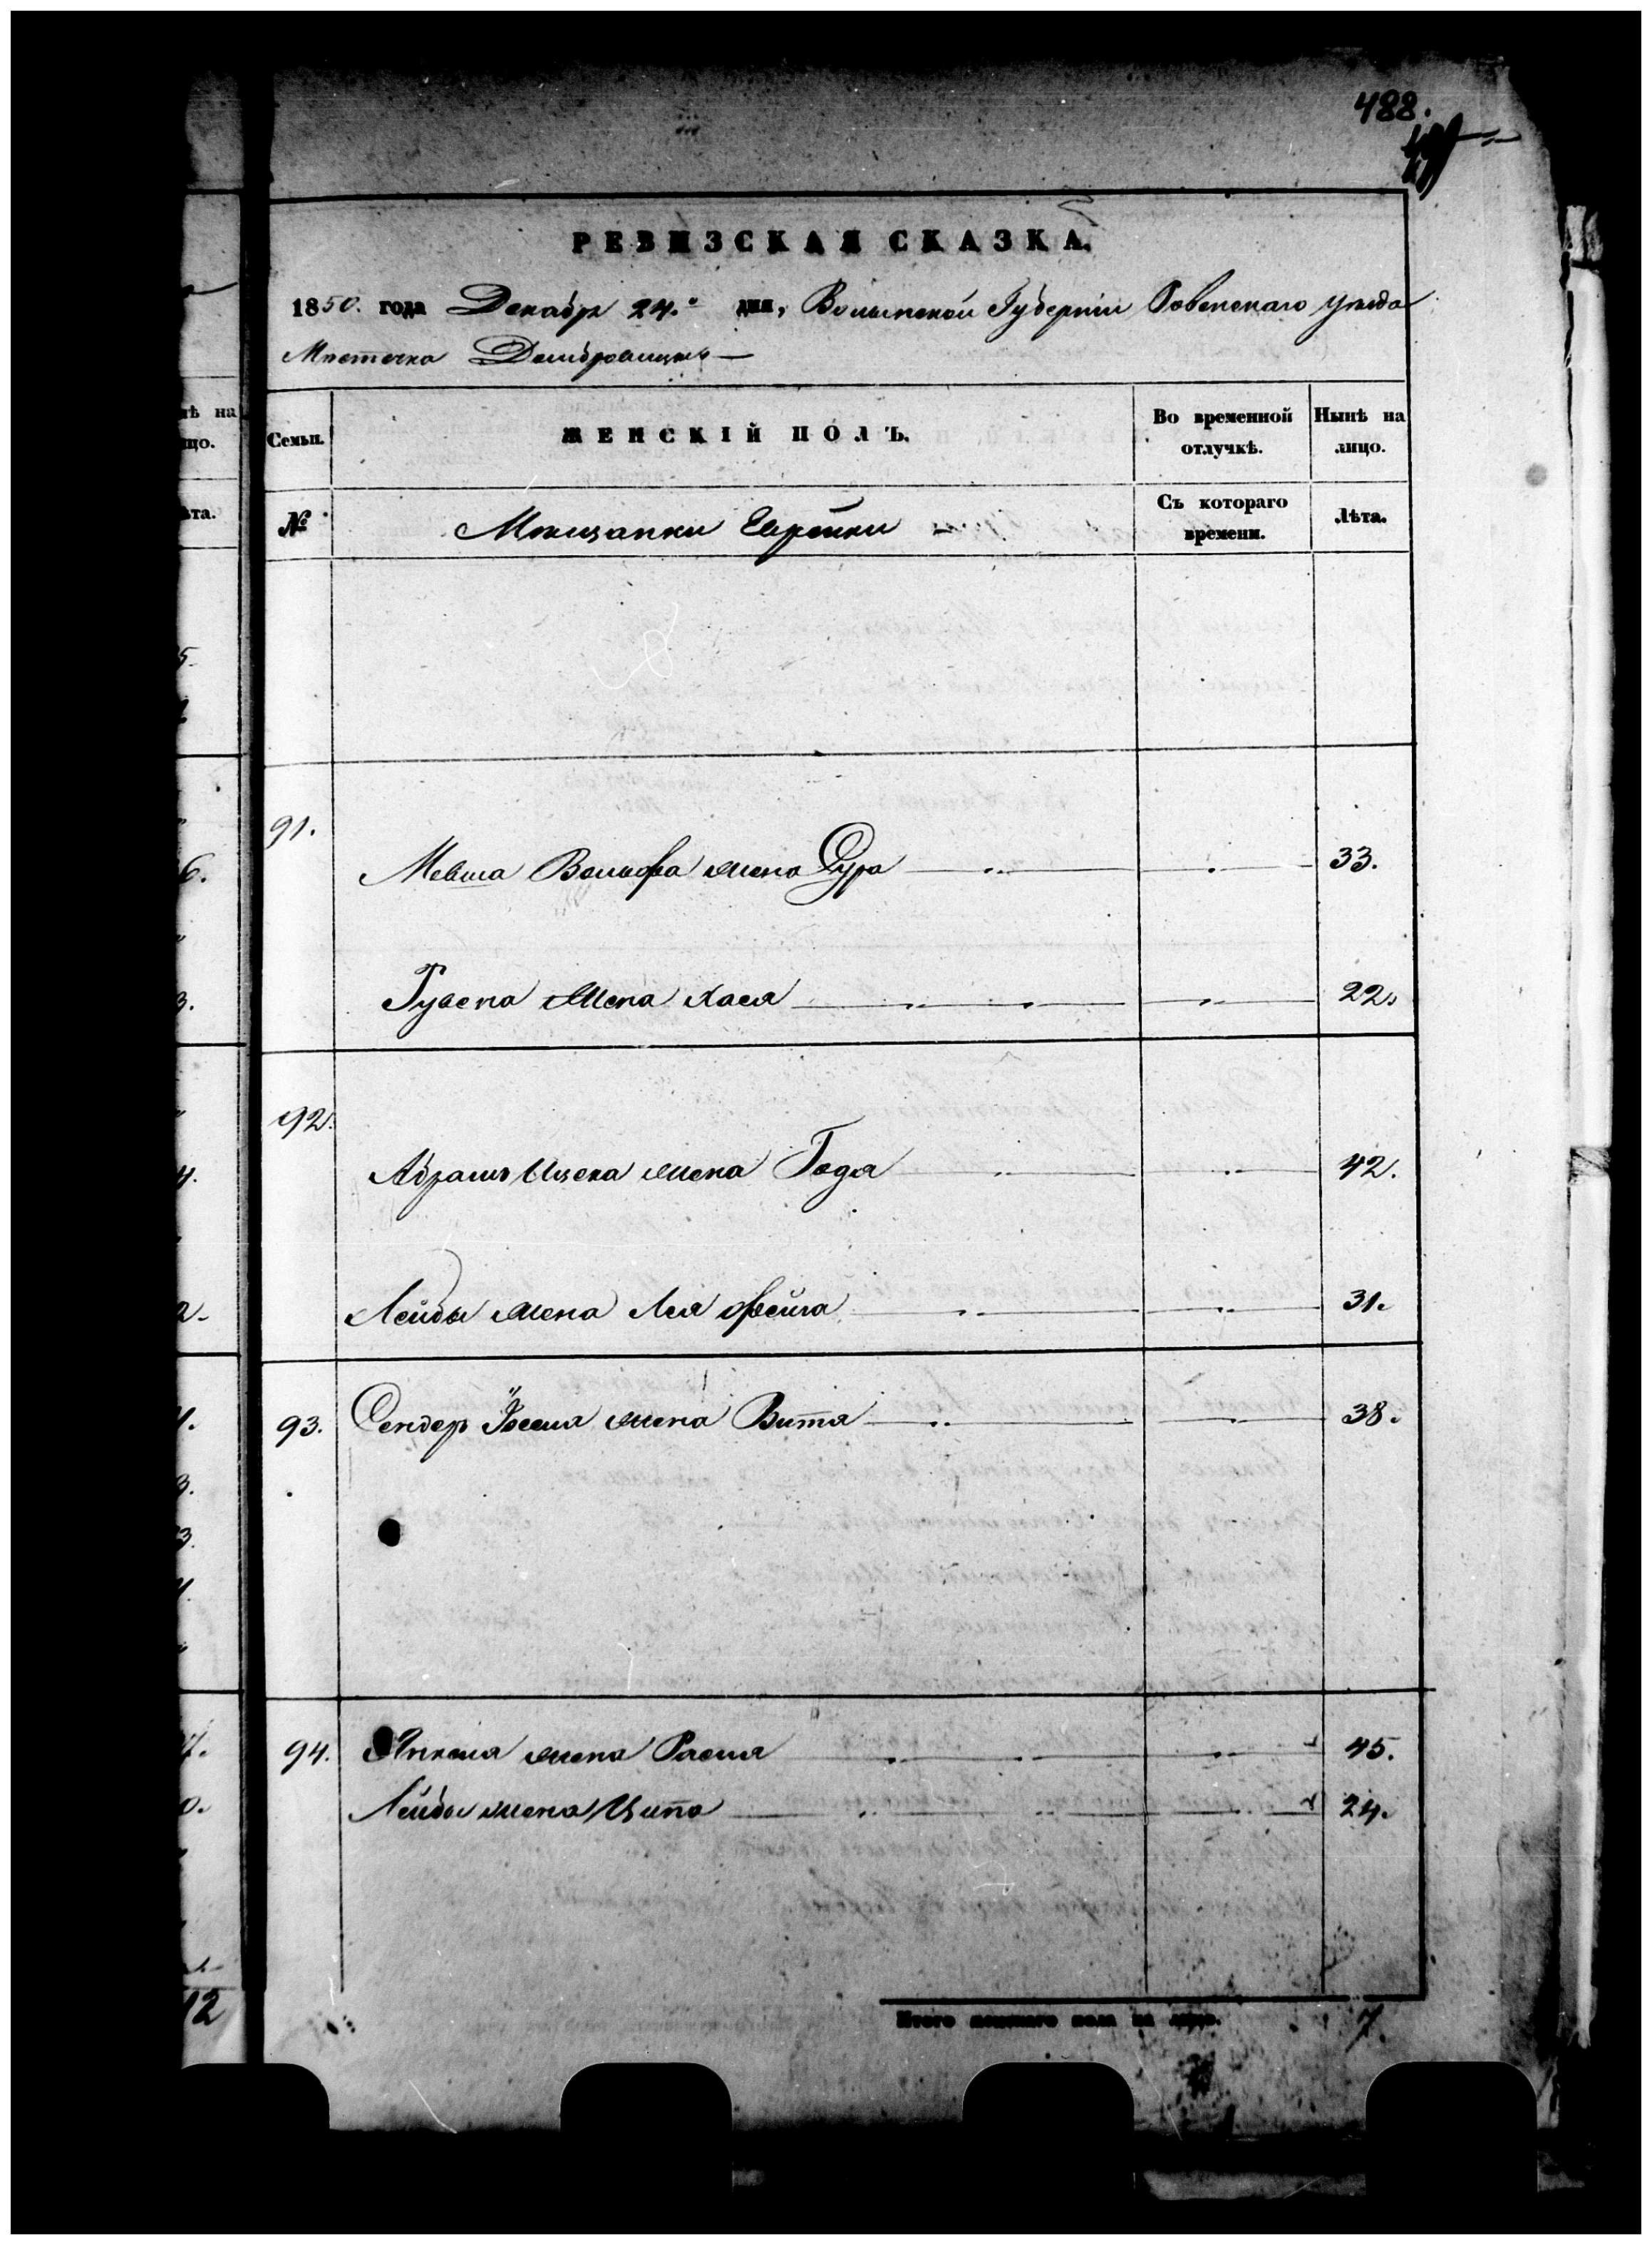 488.
РЕВИЗСКАЯ СКАЗКА.
1850. года Декабря 24.º дня, Волынской Губерніи Ровенскаго уѣзда
Мѣстечка Домбровицы
нѣ на
лицо.
Семьи.
ЖЕНСКІЙ ПОЛЪ.
Во временной
отлучкѣ.
Нынѣ на
лицо.
ѣта.
№
Мѣщанки Еврейки
Съ котораго
времени.
Лѣта.
91.
Мевша Вольфа жена Сура 33.
Рувена жена Хася 22.
92.
Абрамъ Ицека жена Годя 42.
Лейбы жена Лея Фейга 31.
93. Сендер Іосея жена Витя 38.
94. Янкеля жена Рася 45.
Лейбы жена Ципа 24.
12
Итого женскаго пола на лицо. 7.